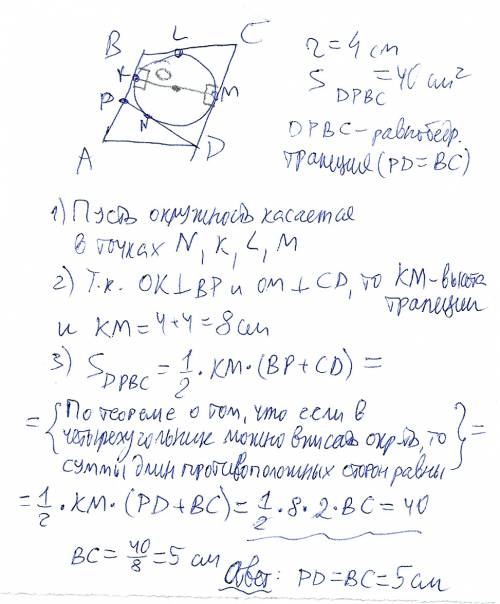 B L C
K O
P M
N
A D
r = 4 см
S DPBC = 40 см²
DPBC - равнобедр.
трапеция (PD = BC)
1) Пусть окружность касается
в точках N, K, L, M
2) Т.к. OK ⊥ BP и OM ⊥ CD, то KM - высота
трапеции
и KM = 4 + 4 = 8 см
3) S DPBC = 1/2 · KM · (BP + CD) =
= {По теореме о том, что если в
четырехугольник можно вписать окр-ть, то
суммы длин противоположных сторон равны} =
= 1/2 · KM · (PD + BC) = 1/2 · 8 · 2 · BC = 40
BC = 40/8 = 5 см
Ответ: PD = BC = 5 см